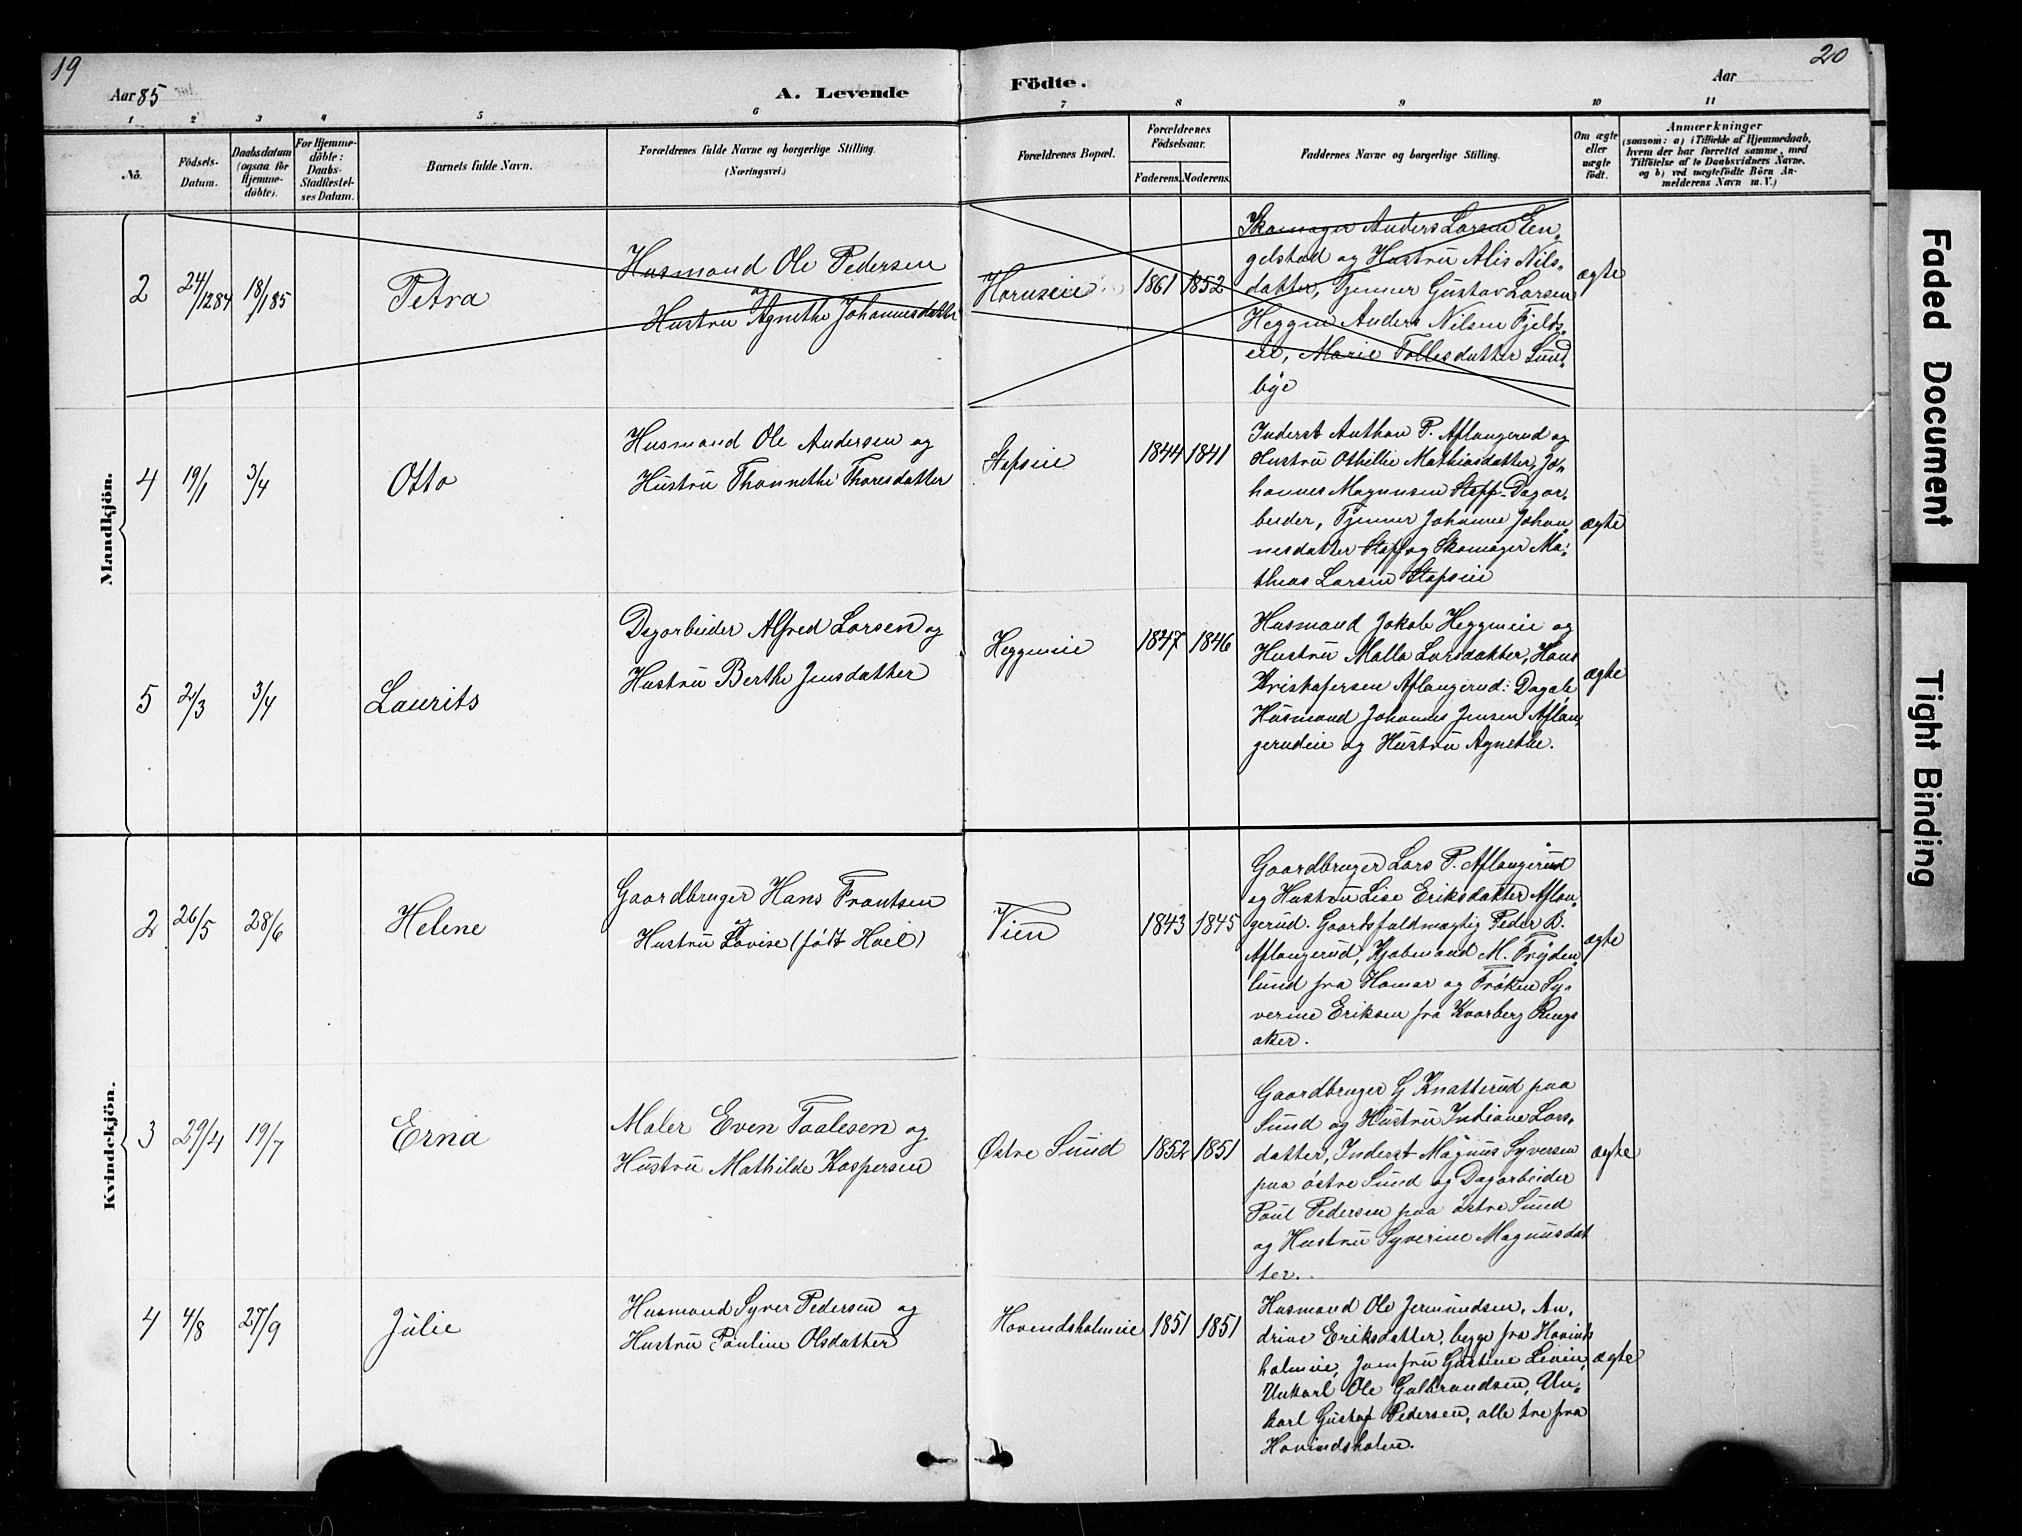 19
20
Aar 85
A. Levende
Födte.
Aar
1 2 3 4 5 6 7 8 9 10 11
No.
Födsels-
Datum.
Daabsdatum
(ogsaa for
Hjemme-
döbte).
For Hjemme-
döbte:
Daabs-
Stadfæstel-
ses Datum.
Barnets fulde Navn.
Forældrenes fulde Navne og borgerlige Stilling.
(Næringsvei.)
Forældrenes Bopæl.
Forældrenes
Födselsaar.
Faderens.
Moderens.
Faddernes Navne og borgerlige Stilling.
Om ægte
eller
uægte
födt.
Anmærkninger
(saasom: a) i Tilfælde af Hjemmedaab,
hvem der har forrettet samme, med
Tilföielse af to Daabsvidners Navne,
og b) ved uægtefödte Börn An-
melderens Navn m. V.)
Mandkjön.
2
24/1284
18/185
Petra
Husmand Ole Pedersen
og
Hustru Agnethe Johannesdatter
Horneie
1861
1852
Skomager Anders Larsen En,
gelstad og Hustru Alis Nils,
datter, Tjener Gustav Larsen
Heggen Anders Nilsen Fjelds,
eie, Marie Tollesdatter Sund,
bye
ægte
4
19/1
3/4
Otto
Husmand Ole Andersen og
Hustru Thonnethe Thoresdatter
Stafseie
1844
1841
Inderst Anthon P. Aflangerud og
Hustru Othillie Mathiasdatter, Jo,
hannes Magnusen Staff Dagar,
beider, Tjener Johanne Johan,
nesdatter Staff og Skomager Ma,
thias Larsen Stafseie
ægte
5
2/3
3/4
Laurits
Dagarbeider Alfred Larsen og
Hustru Berthe Jensdatter
Heggeneie
1847
1846
Husmand Jakob Heggeneie og
Hustru Malla Larsdatter, Hans
Kristofersen Aflangerud: Dagarb,
Husmand Johannes Jensen Aflan,
gerudeie og Hustru Agnethe.
ægte
Kvindekjön.
2
26/5
28/6
Helene
Gaardbruger Hans Frantsen
og
Hustru Lovise (født Hoel)
Vien
1843
1845
Gaardbruger Lars P. Aflangerud
og Hustru Lise Eriksdatter Aflan,
gerud. Gaardsfuldmægtig Peder B.
Aflangerud, Kjøbmand M. Frøden,
lund fra Hamar og Frøken Sy,
verine Eriksen fra Kvarberg Rings
aker.
ægte
3
29/4
19/7
Erna
Maler Even Taalesen og
Hustru Mathilde Kaspersen
Østre Sund
1852
1851
Gaardbruger G Knatterud paa
Sund og Hustru Indiane Lars,
datter, Inderst Magnus Syversen
paa østre Sund og Dagarbeider
Paul Pedersen paa østre Sund
og Hustru Syverine Magnusdat
ter.
ægte
4
4/8
27/9
Julie
Husmand Syver Pedersen og
Hustru Pauline Olsdatter
Hovindsholmeie
1851
1851
Husmand Ole Jermundsen, An,
drine Eriksdatter, begge fra Hovinds
holmeie, Jomfru Gustine Levin,
Unkarl Ole Gulbrandsen, Un,
karl Gustaf Pedersen, alle tre fra
Hovindsholm.
ægte
Faded Document
Tight Binding